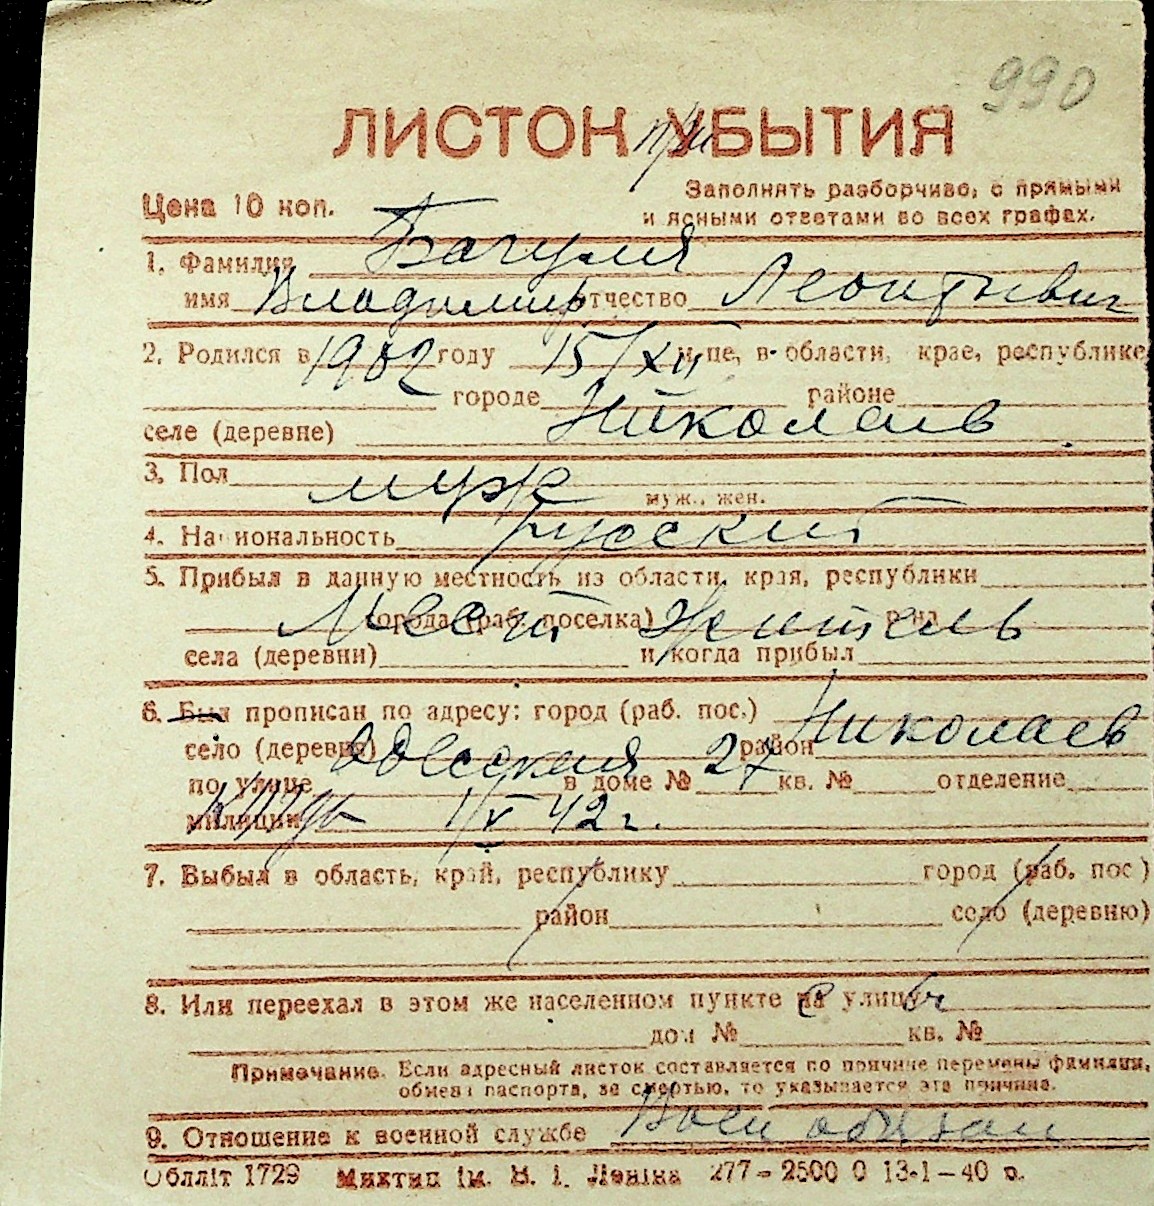 990
ЛИСТОК УБЫТИЯ
при
Цена 10 коп.
Заполнять разборчиво, с прямыми
и ясными ответами во всех графах.
1. Фамилия Багуля
имя Владимир отчество Леонтьевич
2. Родился в 1902 году 15/XII м-це, в области, крае, республике
городе районе
селе (деревне) Николаев
3. Пол муж
муж., жен.
4. Национальность Русский
5. Прибыл в данную местность из области, края, республики
города (раб. поселка) р-на
Мест житель
села (деревни) и когда прибыл
6. Был прописан по адресу: город (раб. пос.) Николаев
село (деревня) район
по улице Одесская в доме № 27 кв. № отделение
милиции 1/V 42 г.
7. Выбыл в область, край, республику город (раб. пос.)
район село (деревню)
8. Или переехал в этом же населенном пункте на улицу
дом № кв. №
Примечание. Если адресный листок составляется по причине перемены фамилии,
обмена паспорта, за смертью, то указывается эта причина.
9. Отношение к военной службе Воен обязан
Облліт 1729 Миктип ім. В. І. Леніна 277—2500 0 13-1—40 р.